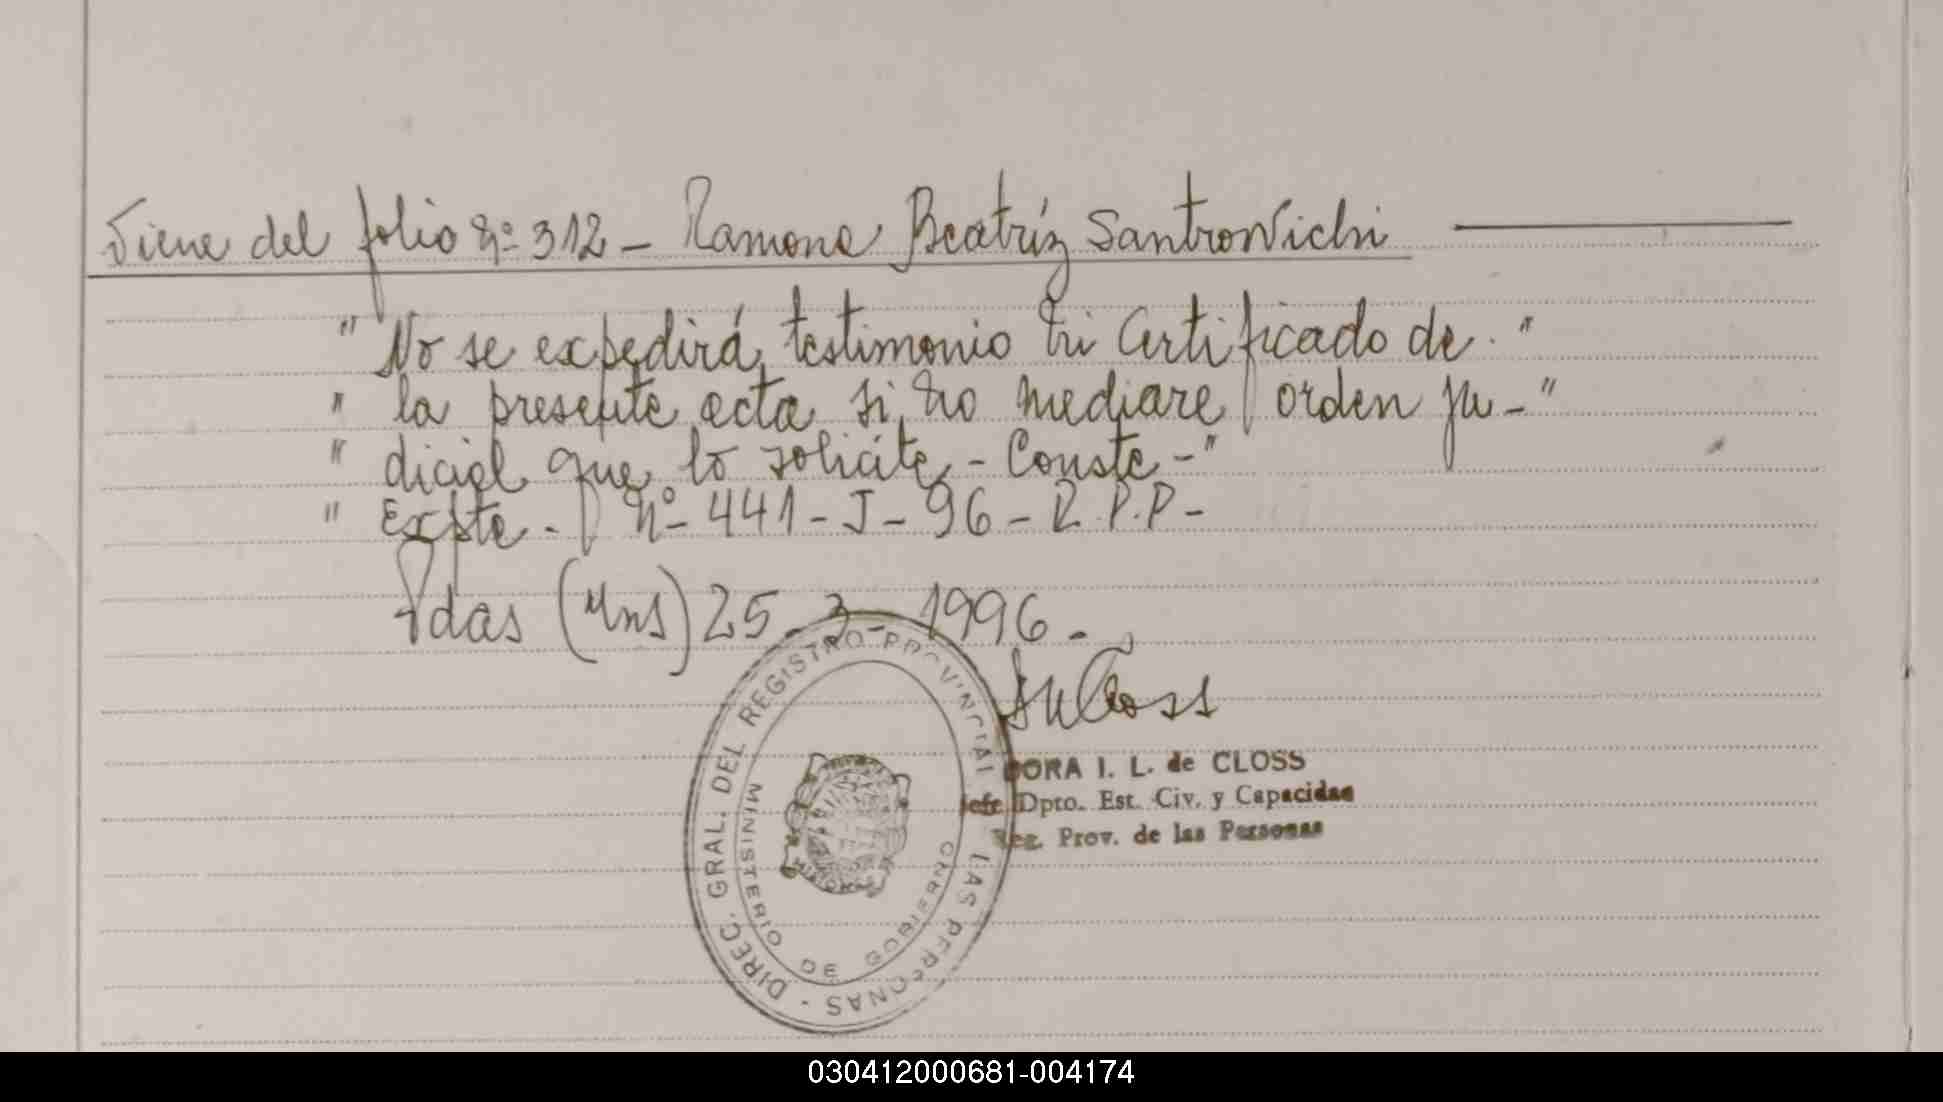 Viene del folio nº 312 - Ramona Beatríz Santrovichi
"No se expedirá testimonio ni Certificado de."
" la presente acta si no mediare orden ju-"
" dicial que lo solicite - Conste -"
" Expte. Nº 441 - J - 96 - R.P.P -
Pdas (Mns) 25 - 3 - 1996 -
DORA I. L. de CLOSS
Jefe Dpto. Est. Civ. y Capacidad
Reg. Prov. de las Personas
DIREC. GRAL. DEL REGISTRO PROVINCIAL LAS PERSONAS -
MINISTERIO DE GOBIERNO
MISIONES
030412000681-004174